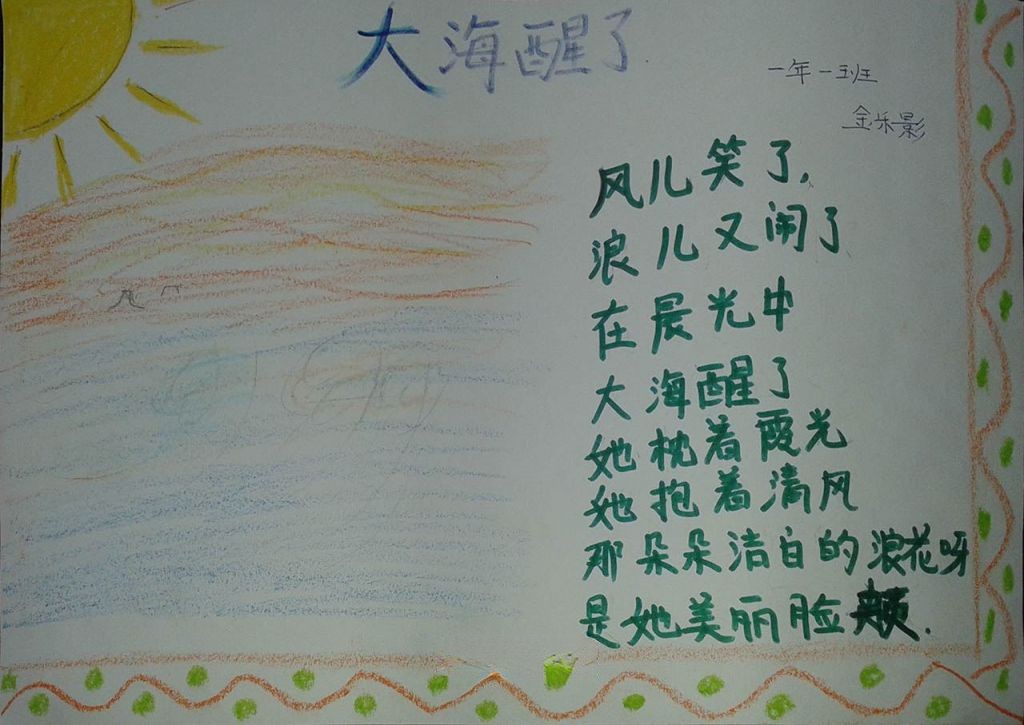 大海醒了
一年一班
金乐影
风儿笑了,
浪儿又闹了
在晨光中
大海醒了
她枕着霞光
她抱着清风
那朵朵洁白的浪花呀
是她美丽脸颊.